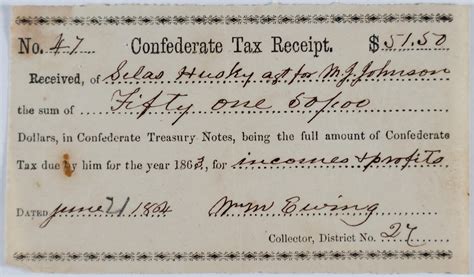 No. 47 Confederate Tax Receipt. $51.50
Received, of Silas Husky agt for M. J. Johnson
the sum of Fifty one 50/100
Dollars, in Confederate Treasury Notes, being the full amount of Confederate
Tax due by him for the year 1863, for incomes & profits
DATED June 21 1864 Wm M Ewing
Collector, District No. 27